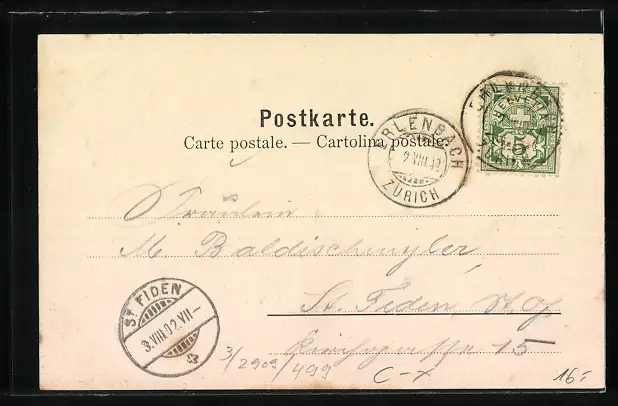 Postkarte.
Carte postale. — Cartolina postale.
ERLENBACH
2.VIII.02
ZÜRICH
HELVETIA
5
Fräulein
M. Baldischwyler
St. Fiden, St. G.
15
ST FIDEN
3.VIII.02.VII-
3/2909/499
C-x
16.-